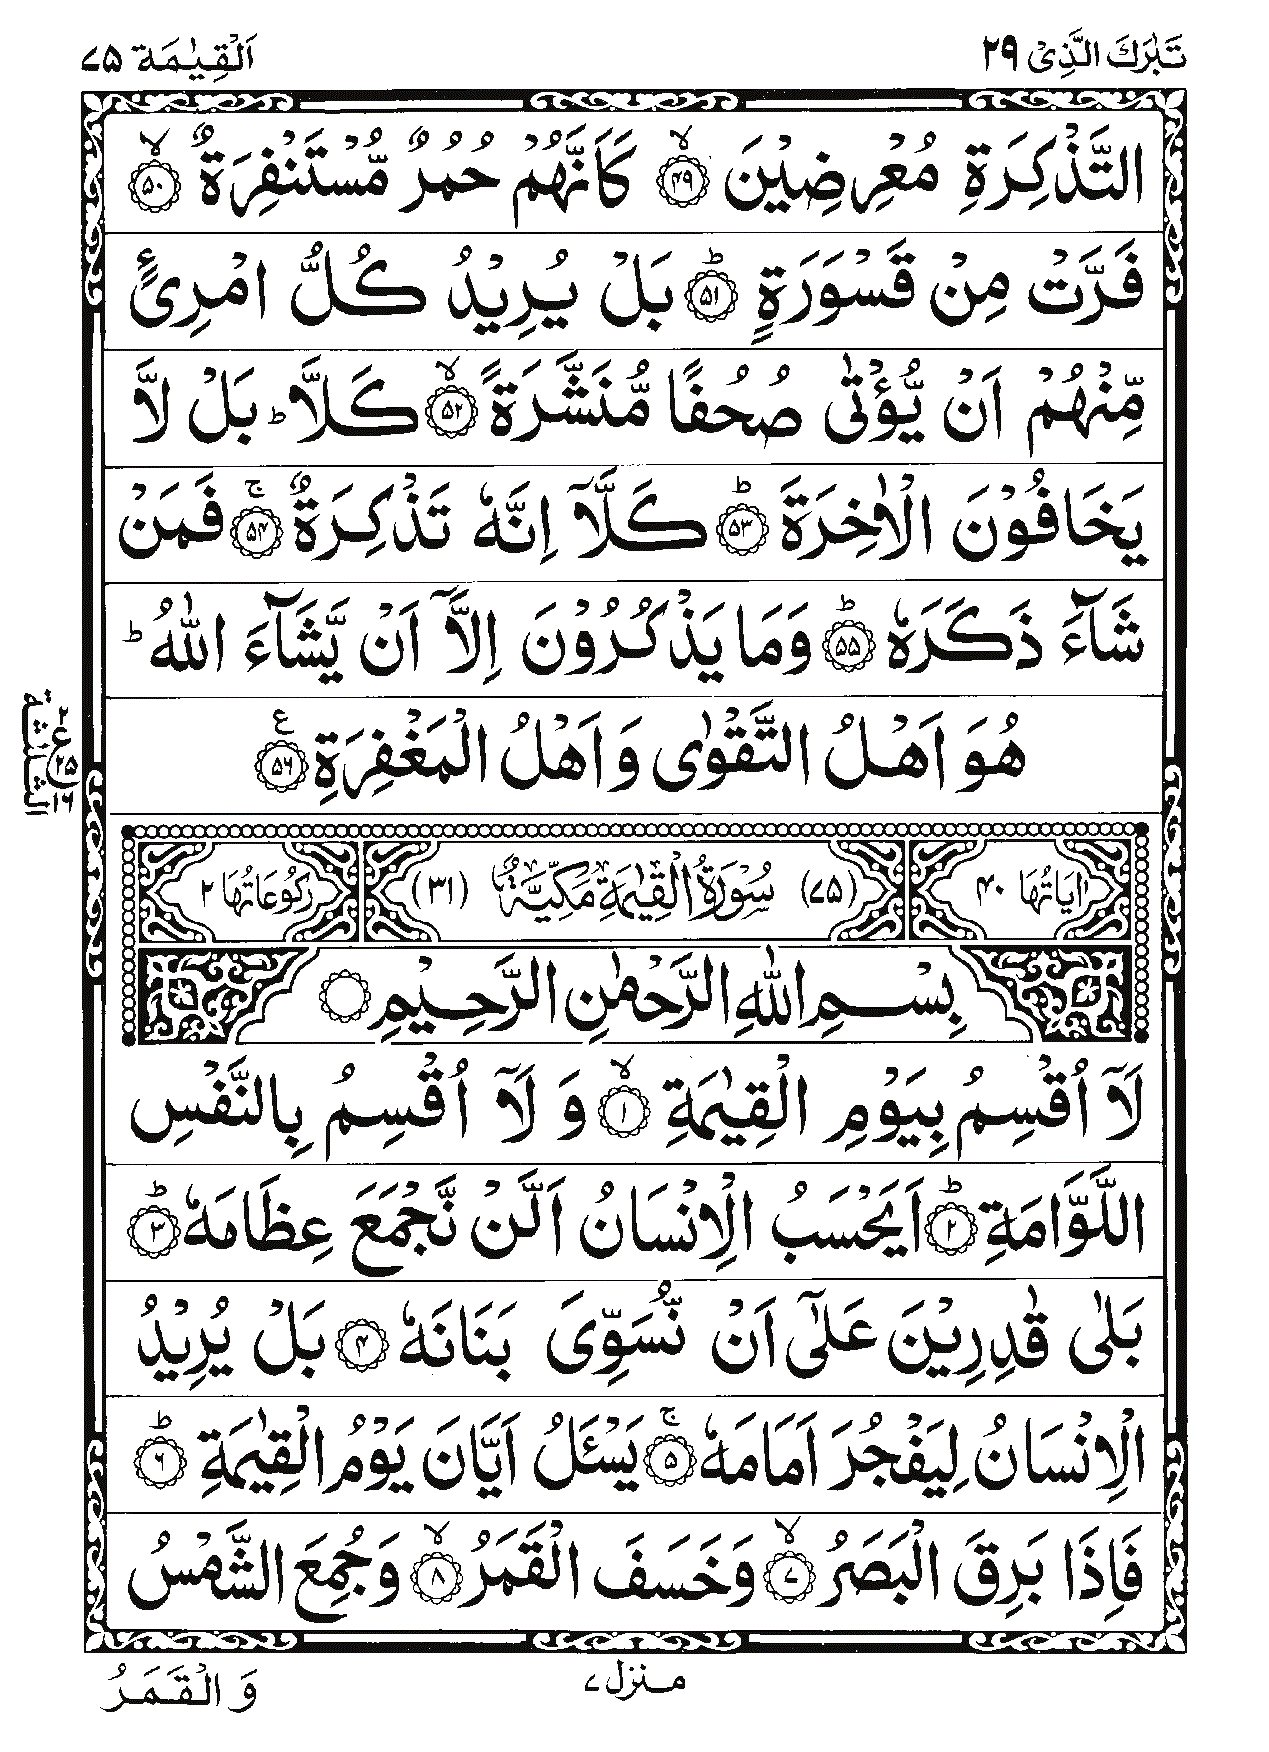 تَبٰرَكَ الَّذِىْ ٢٩
اَلْقِيٰمَة ٧٥
التَّذْكِرَةِ مُعْرِضِيْنَ ۙ‏﴿۴۹﴾ كَاَنَّهُمْ حُمُرٌ مُّسْتَنْفِرَةٌ ۙ‏﴿۵۰﴾
فَرَّتْ مِنْ قَسْوَرَةٍ ؕ‏﴿۵۱﴾ بَلْ يُرِيْدُ كُلُّ امْرِیٴٍ
مِّنْهُمْ اَنْ يُّؤْتٰى صُحُفًا مُّنَشَّرَةً ۙ‏﴿۵۲﴾ كَلَّا ؕ بَلْ لَّا
يَخَافُوْنَ الْاٰخِرَةَ ؕ‏﴿۵۳﴾ كَلَّاۤ اِنَّهٗ تَذْكِرَةٌ ۚ‏﴿۵۴﴾ فَمَنْ
شَآءَ ذَكَرَهٗ ؕ‏﴿۵۵﴾ وَمَا يَذْكُرُوْنَ اِلَّاۤ اَنْ يَّشَآءَ اللّٰهُ ؕ
هُوَ اَهْلُ التَّقْوٰى وَ اَهْلُ الْمَغْفِرَةِ ﴿۵۶﴾ ع
الثلاثة
٢ ع ٢٥ ١٦
اٰيَاتُهَا ۴۰ (۷۵) سُوْرَةُ الْقِيٰمَةِ مَكِّيَّةٌ (۳۱) رُكُوْعَاتُهَا ۲
بِسْمِ اللّٰهِ الرَّحْمٰنِ الرَّحِيْمِ
لَاۤ اُقْسِمُ بِيَوْمِ الْقِيٰمَةِ ۙ‏﴿۱﴾ وَ لَاۤ اُقْسِمُ بِالنَّفْسِ
اللَّوَّامَةِ ؕ‏﴿۲﴾ اَيَحْسَبُ الْاِنْسَانُ اَلَّنْ نَّجْمَعَ عِظَامَهٗ ؕ‏﴿۳﴾
بَلٰى قٰدِرِيْنَ عَلٰٓى اَنْ نُّسَوِّىَ بَنَانَهٗ ﴿۴﴾ بَلْ يُرِيْدُ
الْاِنْسَانُ لِيَفْجُرَ اَمَامَهٗ ۚ‏﴿۵﴾ يَسْـَٔلُ اَيَّانَ يَوْمُ الْقِيٰمَةِ ؕ‏﴿۶﴾
فَاِذَا بَرِقَ الْبَصَرُ ۙ‏﴿۷﴾ وَخَسَفَ الْقَمَرُ ۙ‏﴿۸﴾ وَجُمِعَ الشَّمْسُ
منزل ٧
وَ الْقَمَرُ